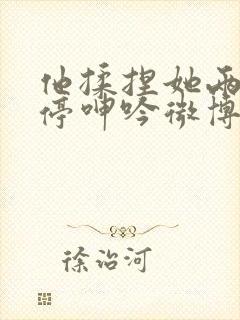 他揉捏她两
停呻吟微博
徐治河